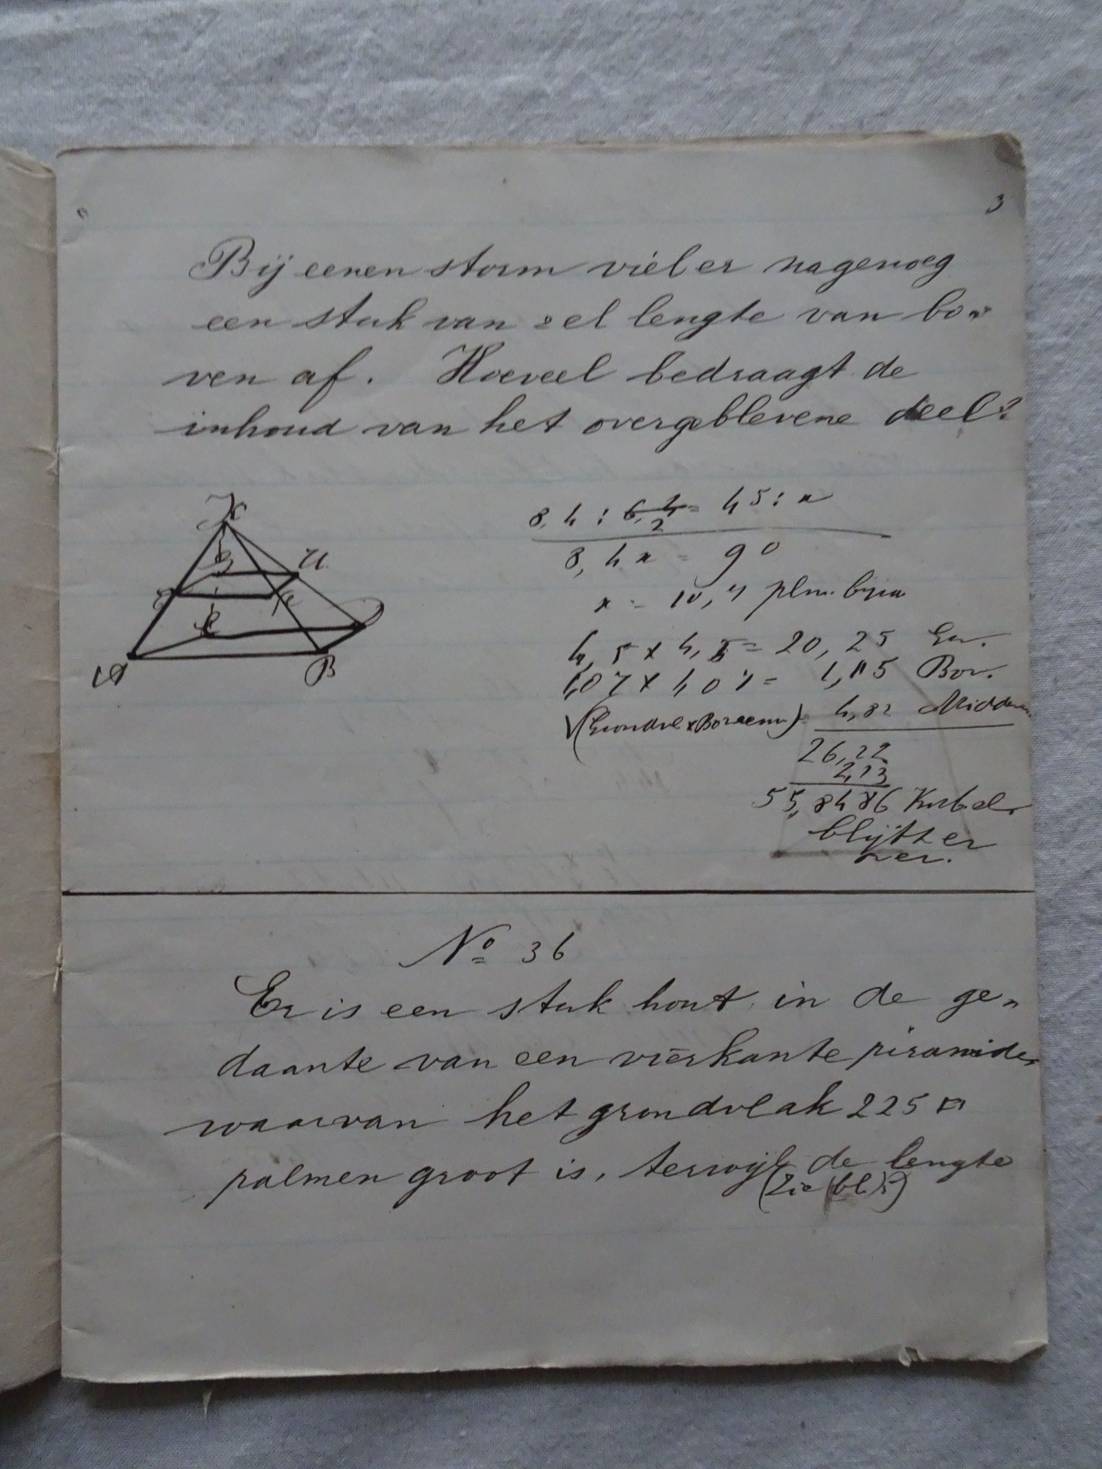 3
Bij eenen storm viel er nagenoeg
een stuk van 2 el lengte van bo„
ven af. Hoeveel bedraagt de
inhoud van het overgeblevene deel?
8,4 : 6,4/2 = 45 : x
8,4x = 90
x = 10,7 plm. bijna
4,5 x 4,5 = 20,25 Gr.
1,07 x 1,07 = 1,15 Bov.
√(Grondvl x Bovenv) = 4,82 Midden
26,22
2,13
55,8486 Kub el
blijft er
over.
A B
No 36
Er is een stuk hout in de ge„
daante van een vierkante piramide,
waarvan het grondvlak 225 □
palmen groot is, terwijl de lengte
(Zie bl. 5)